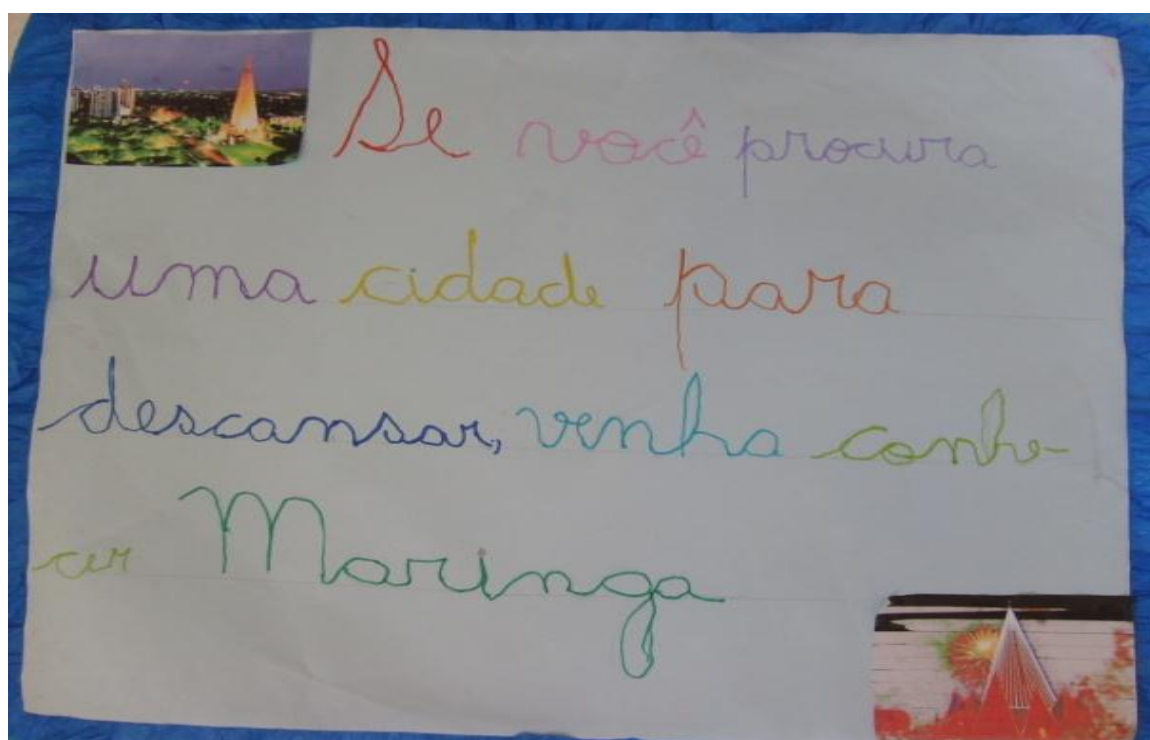 Se você procura
uma cidade para
descansar, venha conhe-
cer Maringa